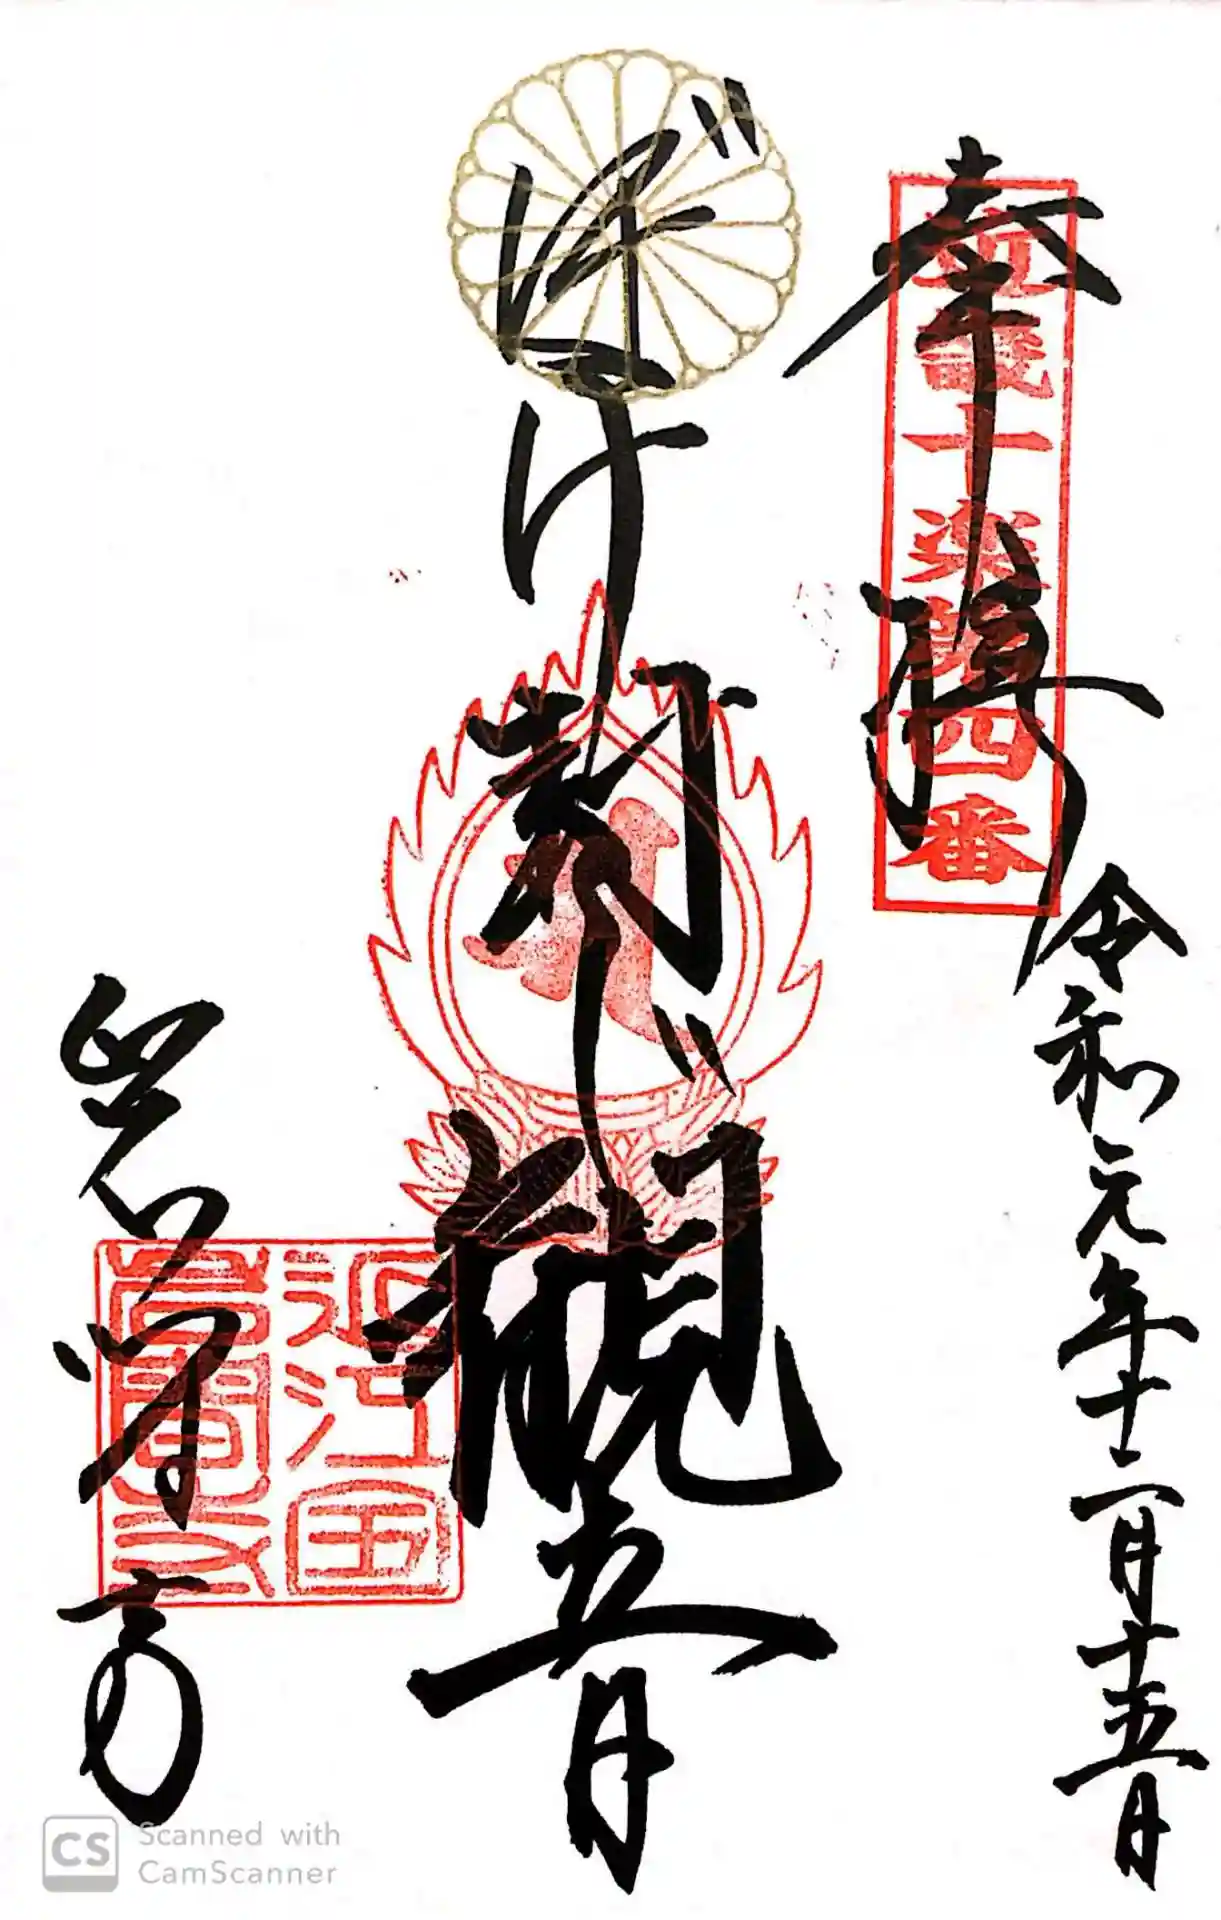 奉拝
近畿十楽第四番
令和元年十二月十五日
ぼけ封じ観音
近江国
Scanned with
CamScanner
CS